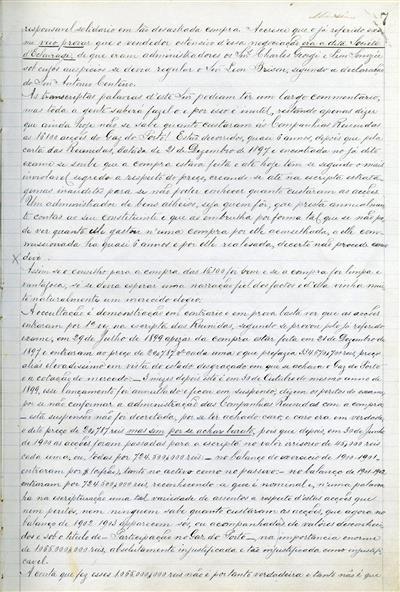 7
responsavel solidario em tão desastrada compra. Accresce que o já referido exa-
me veio provar que o vendedor ostensivo d'essa negociação era a dita Société
d'Eclairage de que eram administradores os Snrs Charles George e Léon Somzée
sob cujos auspicios se devia regular o Snr Léon Brison, segundo a declaração
do Snr Antonio Centeno.
As transcriptas palavras d'este Snr podiam ter um largo commentario,
mas toda a gente saberá fazel-o e por isso é inutil, restando apenas dizer
que ainda hoje não se sabe quanto custaram ás Companhias Reunidas
as 16100 acções do Gaz do Porto! Estes decorridos, quasi 6 annos, depois que pela
carta das Reunidas, datada de 21 de Dezembro de 1897 e encontrada no já dito
exame se soube que a compra estava feita e até hoje tem se seguido o mais
inviolavel segredo a respeito do preço, creando-se até na escripta estrata-
gemas inauditos para se não poder conhecer quanto custaram as acções.
Um administrador de bens alheios, seja quem fôr, que presta annualmen-
te contas ao seu constituinte e que as embrulha por forma tal que se não po-
de ver quanto elle gastou n'uma compra por elle aconselhada, a elle com-
missionada ha quasi 6 annos e por elle realisada, decerto não procede como
deve.
Assim se o conselho para a compra das 16100 foi bom e se a compra foi limpa e
vantajosa, se devia esperar uma narração fiel dos factos e d'ella vinha mui-
to naturalmente um merecido elogio.
A occultação é demonstração em contrario e em prova basta ver que as acções
entraram por 1ª vez na escripta das Reunidas, segundo se provou pelo já referido
exame, em 29 de Julho de 1899 apezar da compra estar feita em 21 de Dezembro de
1897 e entraram ao preço de
aliás elevadissimo em vista do estado desgraçado em que se achava o Gaz do Porto
e a cotação do mercado. – 5 mezes depois isto é em 31 de Dezembro do mesmo anno de
1899, esse lançamento foi annullado e ficou em suspenso, dizem os peritos do exame,
por se não conformar a administração das Companhias Reunidas com a compra
– esta suspensão não foi decretada, por se ter achado caro e caro era em verdade
o dito preço de mas sim por se achar barato, pois que depois em 30 de Junho
de 1900 as acções foram passadas para a escripta no valor irrisorio de 45,000 reis
cada uma, ou todas por 724.500,000 reis – no balanço do exercicio de 1900-1901
entraram por tanto no activo como no passivo – no balanço de 1901-1902
entraram por 724.500,000 reis, reconhecendo a que é nominal, n'uma palavra
ha na escripturação uma tal variedade de assentos a respeito d'estas acções que
nem peritos, nem ninguem sabe quanto custaram as acções, que agora no
balanço de 1902-1903 apparecem sós, ou acompanhadas de valores desconheci-
dos e sob titulo de – Participação no Gaz do Porto –, na importancia enorme
de 1.055.000,000 reis, absolutamente injustificada e tão injustificada como injustifi-
cavel.
A conta que fez esses 1.055.000,000 reis não é portanto verdadeira e tanto não é que